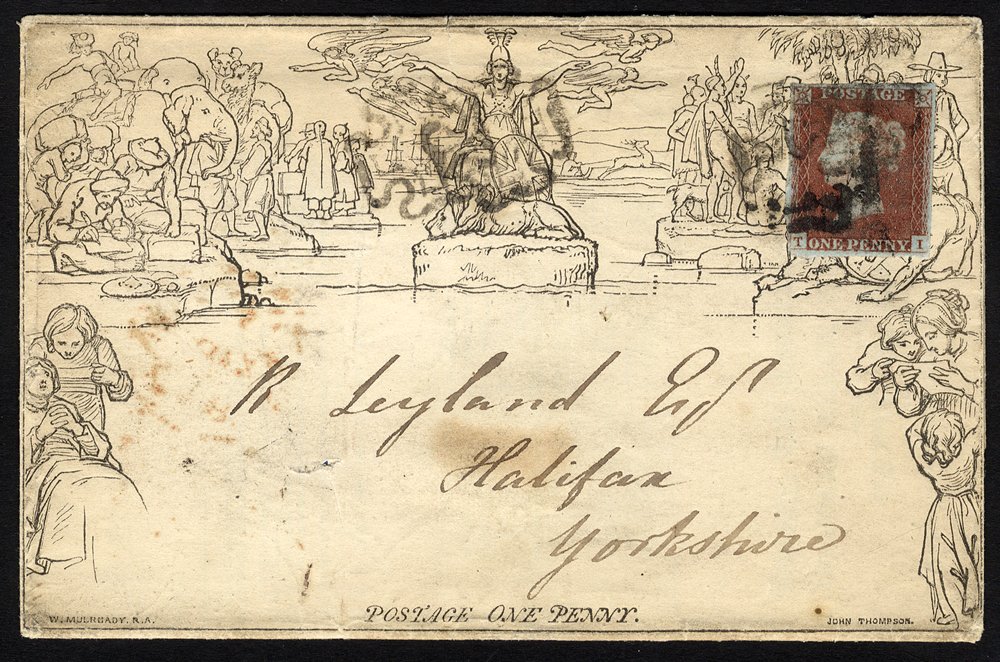 POSTAGE
T ONE PENNY I
R Leyland Esq
Halifax
Yorkshire
POSTAGE ONE PENNY.
W. MULREADY. R.A.
JOHN THOMPSON.